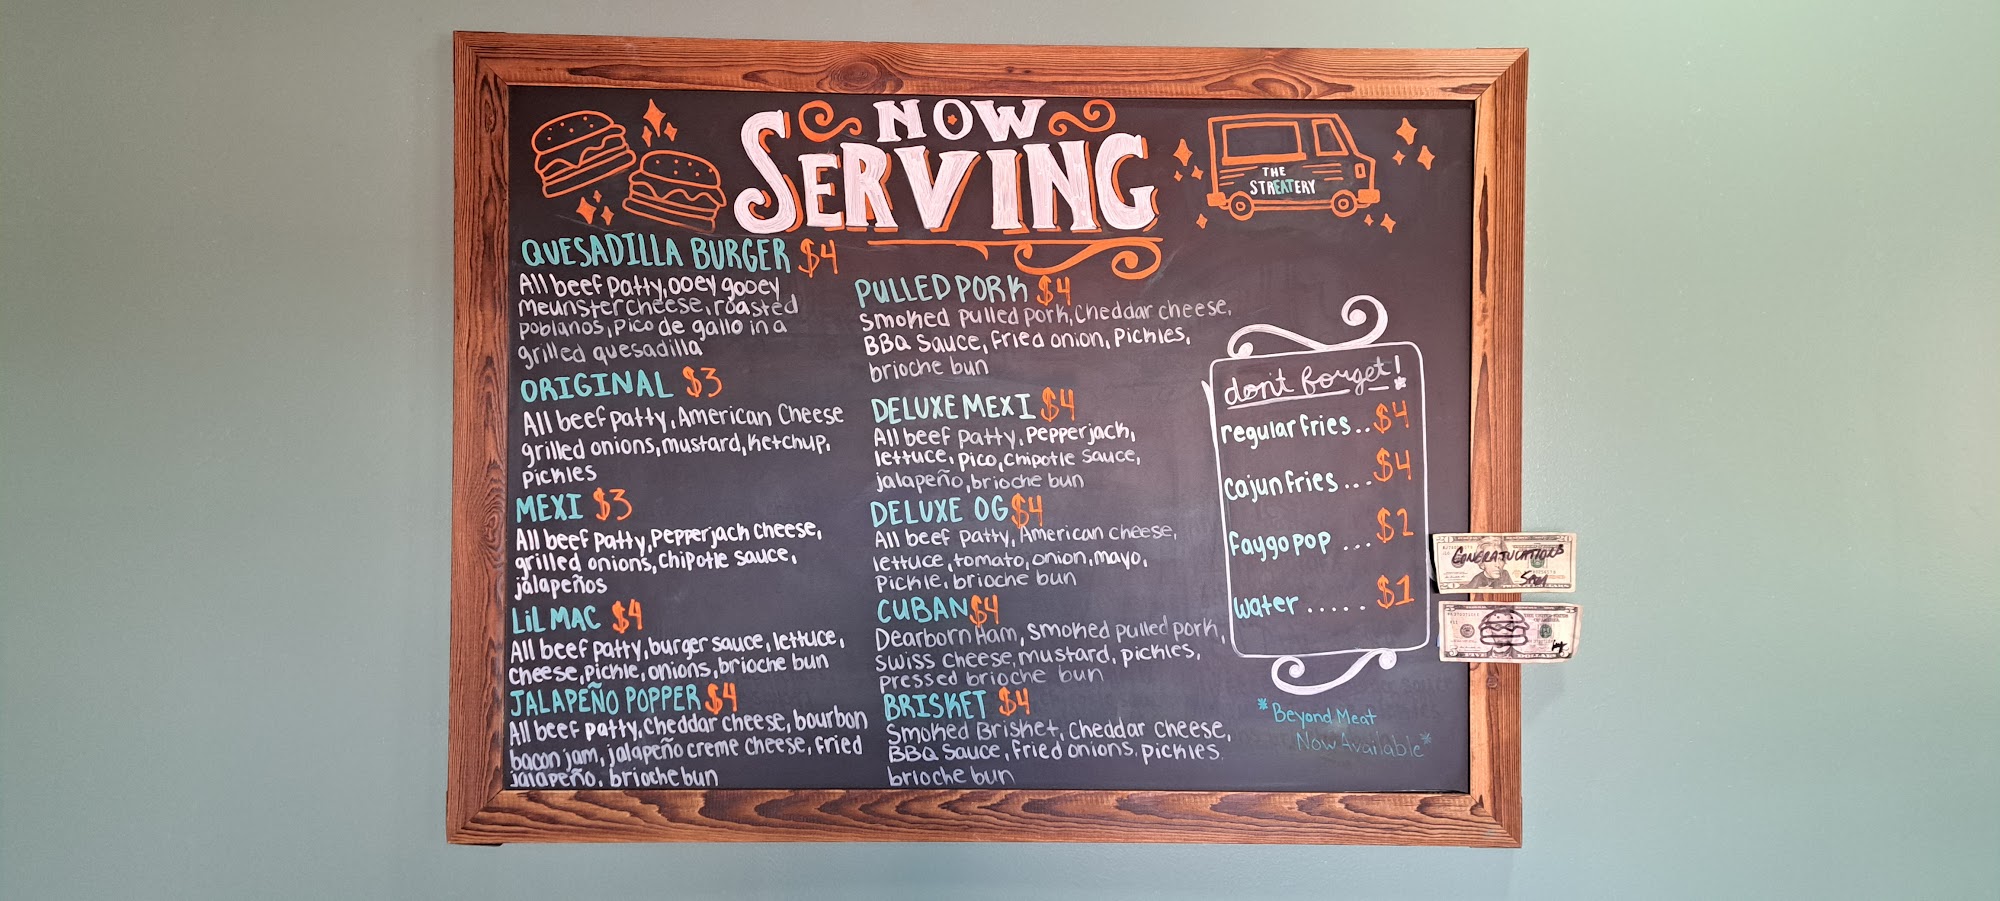 NOW
SERVING
THE
STREATERY
QUESADILLA BURGER $4
All beef patty, ooey gooey
meunster cheese, roasted
poblanos, pico de gallo in a
grilled quesadilla
ORIGINAL $3
All beef patty, American Cheese
grilled onions, mustard, ketchup,
pickles
MEXI $3
All beef patty, Pepperjack cheese,
grilled onions, chipotle sauce,
jalapeños
LiL MAC $4
All beef patty, burger sauce, lettuce,
cheese, pickle, onions, brioche bun
JALAPEÑO POPPER $4
All beef patty, cheddar cheese, bourbon
bacon jam, jalapeño creme cheese, fried
jalapeño, brioche bun
PULLED PORK $4
Smoked pulled pork, cheddar cheese,
BBQ sauce, fried onion, pickles,
brioche bun
DELUXE MEXI $4
All beef patty, Pepperjack,
lettuce, pico, chipotle sauce,
jalapeño, brioche bun
DELUXE OG $4
All beef patty, American cheese,
lettuce, tomato, onion, mayo,
pickle, brioche bun
CUBAN $4
Dearborn Ham, smoked pulled pork,
swiss cheese, mustard, pickles,
pressed brioche bun
BRISKET $4
Smoked Brisket, cheddar cheese,
BBQ sauce, fried onions, pickles.
brioche bun
don't forget!
regular fries.. $4
cajun fries... $4
faygo pop ... $2
water ..... $1
*Beyond Meat
Now Available*
CONGRATULATIONS